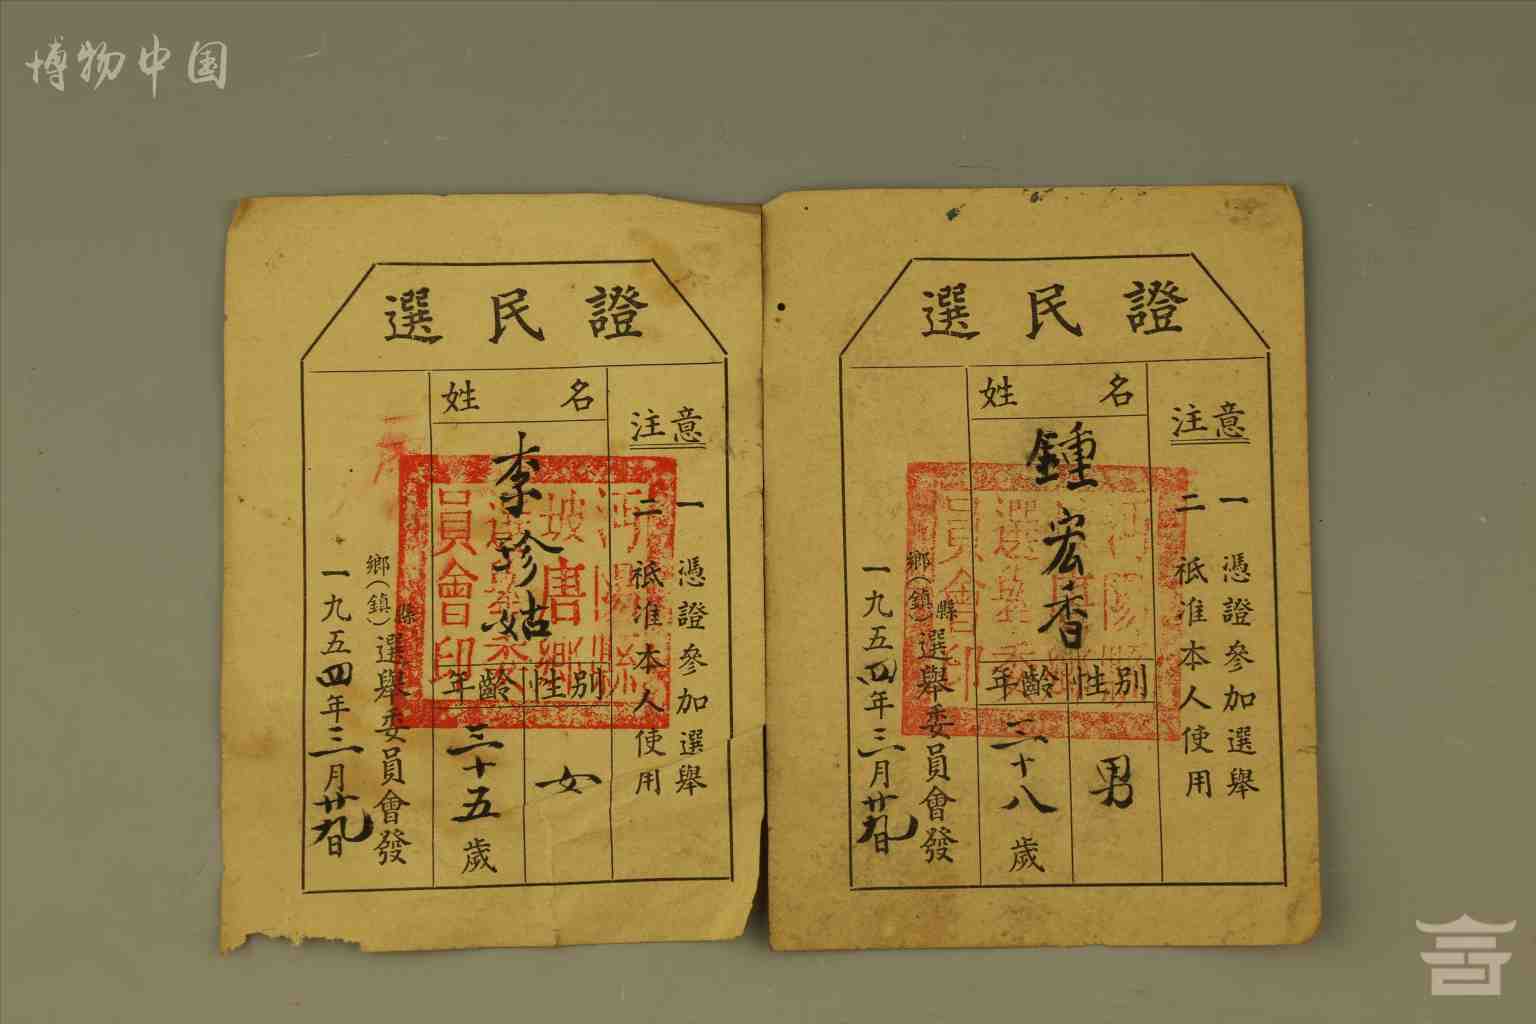 博物中国
選民證
注意
一 憑證參加選舉
二 祗准本人使用
姓名
李珍姑
性別
女
年齡
三十五歲
縣
鄉(鎮)
選舉委員會發
一九五四年三月廿九日
沔陽縣
坡唐鄉
選舉委
員會印
選民證
注意
一 憑證參加選舉
二 祗准本人使用
姓名
鍾宏香
性別
男
年齡
三十八歲
縣
鄉(鎮)
選舉委員會發
一九五四年三月廿九日
選舉委
員會印